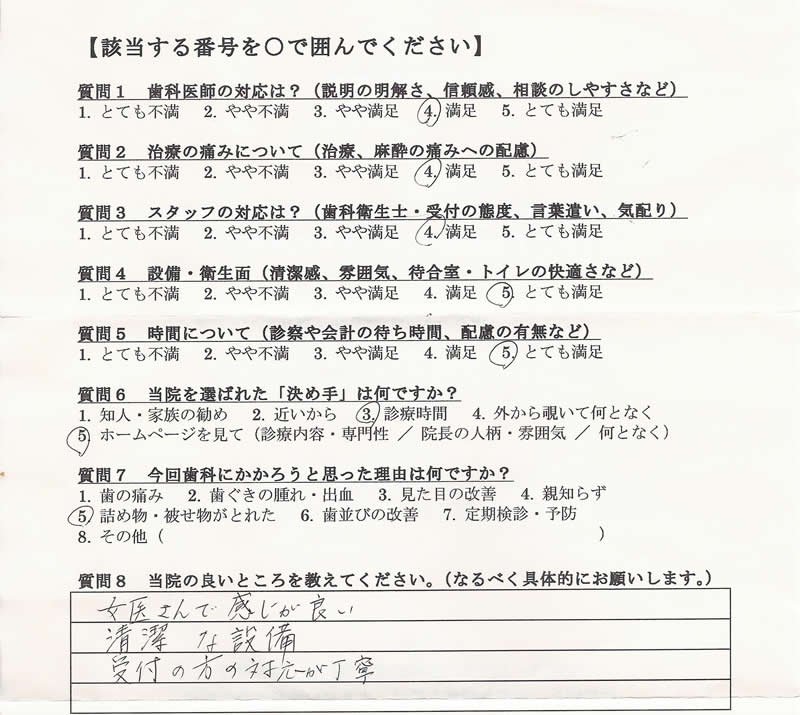 【該当する番号を〇で囲んでください】
質問1　歯科医師の対応は？（説明の明解さ、信頼感、相談のしやすさなど）
1. とても不満　2. やや不満　3. やや満足　4. 満足　5. とても満足
質問2　治療の痛みについて（治療、麻酔の痛みへの配慮）
1. とても不満　2. やや不満　3. やや満足　4. 満足　5. とても満足
質問3　スタッフの対応は？（歯科衛生士・受付の態度、言葉遣い、気配り）
1. とても不満　2. やや不満　3. やや満足　4. 満足　5. とても満足
質問4　設備・衛生面（清潔感、雰囲気、待合室・トイレの快適さなど）
1. とても不満　2. やや不満　3. やや満足　4. 満足　5. とても満足
質問5　時間について（診察や会計の待ち時間、配慮の有無など）
1. とても不満　2. やや不満　3. やや満足　4. 満足　5. とても満足
質問6　当院を選ばれた「決め手」は何ですか？
1. 知人・家族の勧め　2. 近いから　3. 診療時間　4. 外から覗いて何となく
5. ホームページを見て（診療内容・専門性 ／ 院長の人柄・雰囲気 ／ 何となく）
質問7　今回歯科にかかろうと思った理由は何ですか？
1. 歯の痛み　2. 歯ぐきの腫れ・出血　3. 見た目の改善　4. 親知らず
5. 詰め物・被せ物がとれた　6. 歯並びの改善　7. 定期検診・予防
8. その他（　　　　　　　　　　）
質問8　当院の良いところを教えてください。（なるべく具体的にお願いします。）
女医さんで感じが良い
清潔な設備
受付の方の対応が丁寧